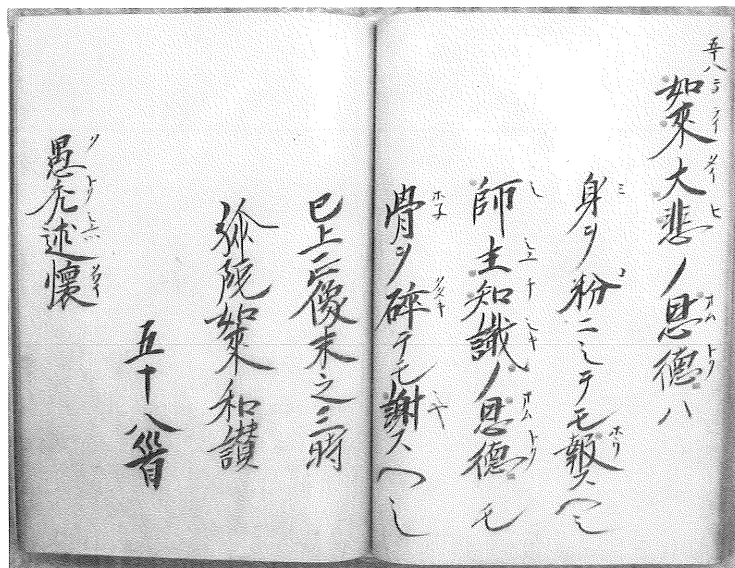 五十八
如來大悲ノ恩德ハ
身ヲ粉ニシテモ報スヘシ
師主知識ノ恩德モ
骨ヲ碎テモ謝スヘシ
已上正像末之三時
弥陀如来和讃
五十八首
愚禿述懷